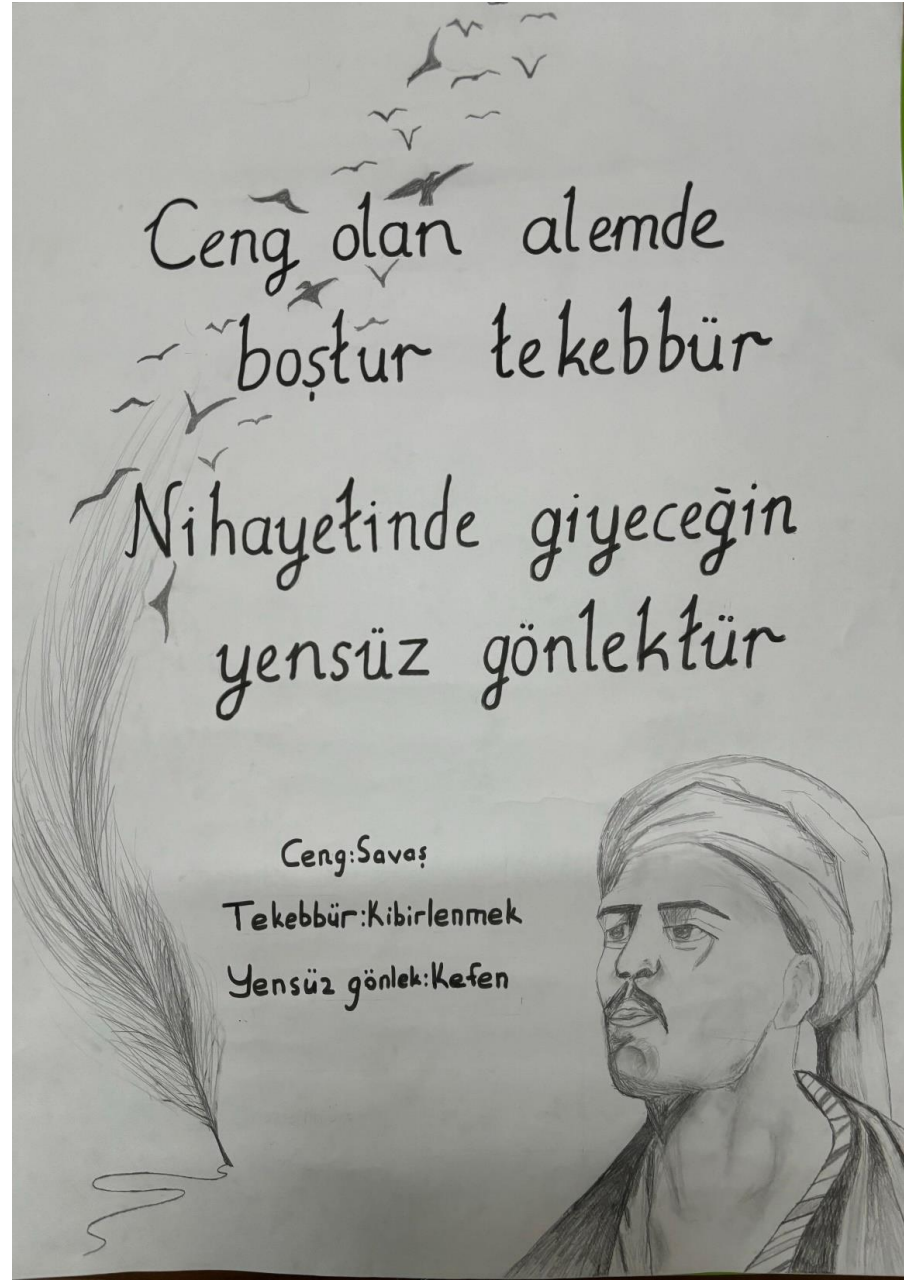 Ceng olan alemde
boştur tekebbür
Nihayetinde giyeceğin
yensüz gönlektür
Ceng:Savaş
Tekebbür:Kibirlenmek
Yensüz gönlek:Kefen